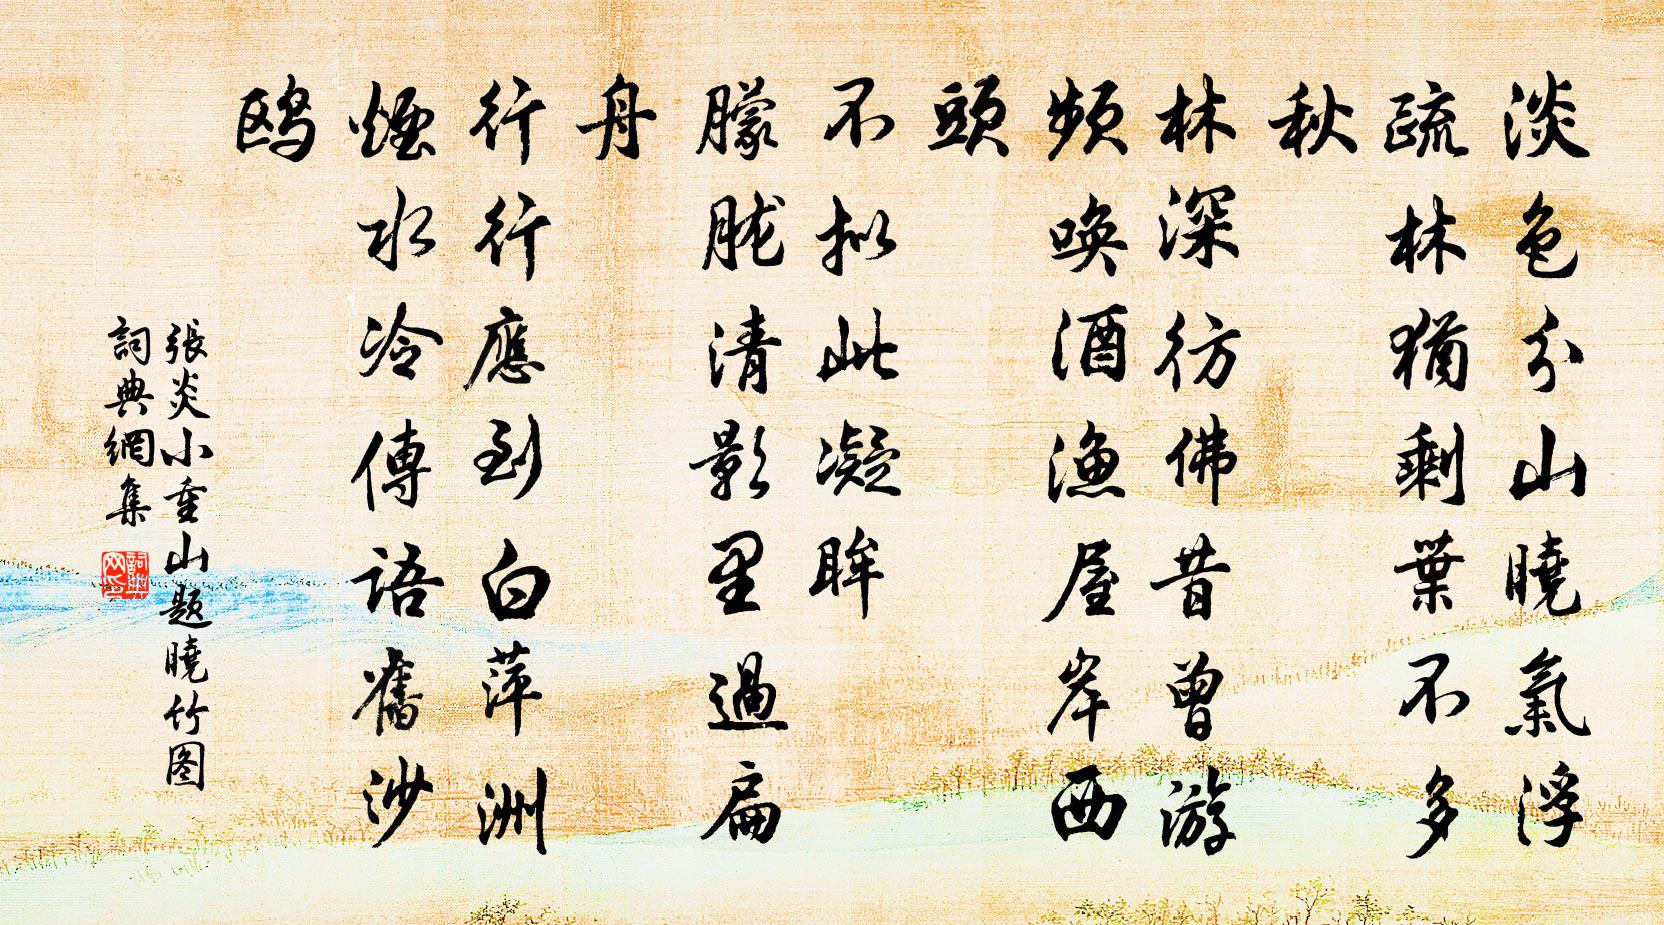 淡色分山曉氣浮
疏林猶剩葉不多
秋
林深彷佛昔曾游
頻喚酒漁屋岸西
頭
不拟此凝眸
朦胧清影里過扁
舟
行行應到白萍洲
煙水冷傳語舊沙
鸥
張炎小重山題曉竹图
詞典網集